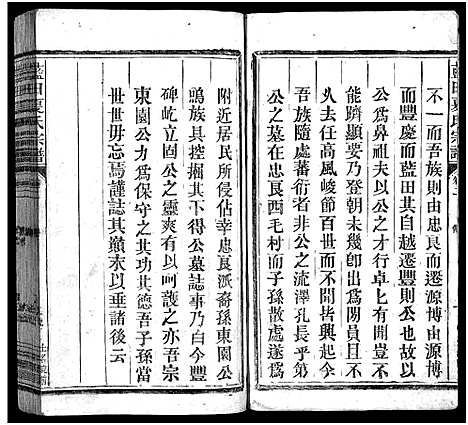 藍田夏氏宗譜
不一而吾族則由忠良而遷源博由源博
而豐慶而藍田其自越遷豐則公也故以
公爲鼻祖夫以公之行之才苟熱中仕進
能躋顯要乃登朝未幾卽出爲郡守郡守
任終高風峻節而不聞堦與繁興起於今
吾族隨處蕃衍者非公之流澤孔長乎第
公之墓在忠良西毛村而子孫散處遂爲
附近居民所侵佔幸忠良派裔孫東園公
鳴族具控掘其下得公墓誌事乃白今豐
碑屹立固公之靈爽有以呵護之亦吾宗
東園公力爲保守之其功其德吾子孫當
世世毋忘焉謹誌其顚末以垂諸後云
藍田夏氏宗譜